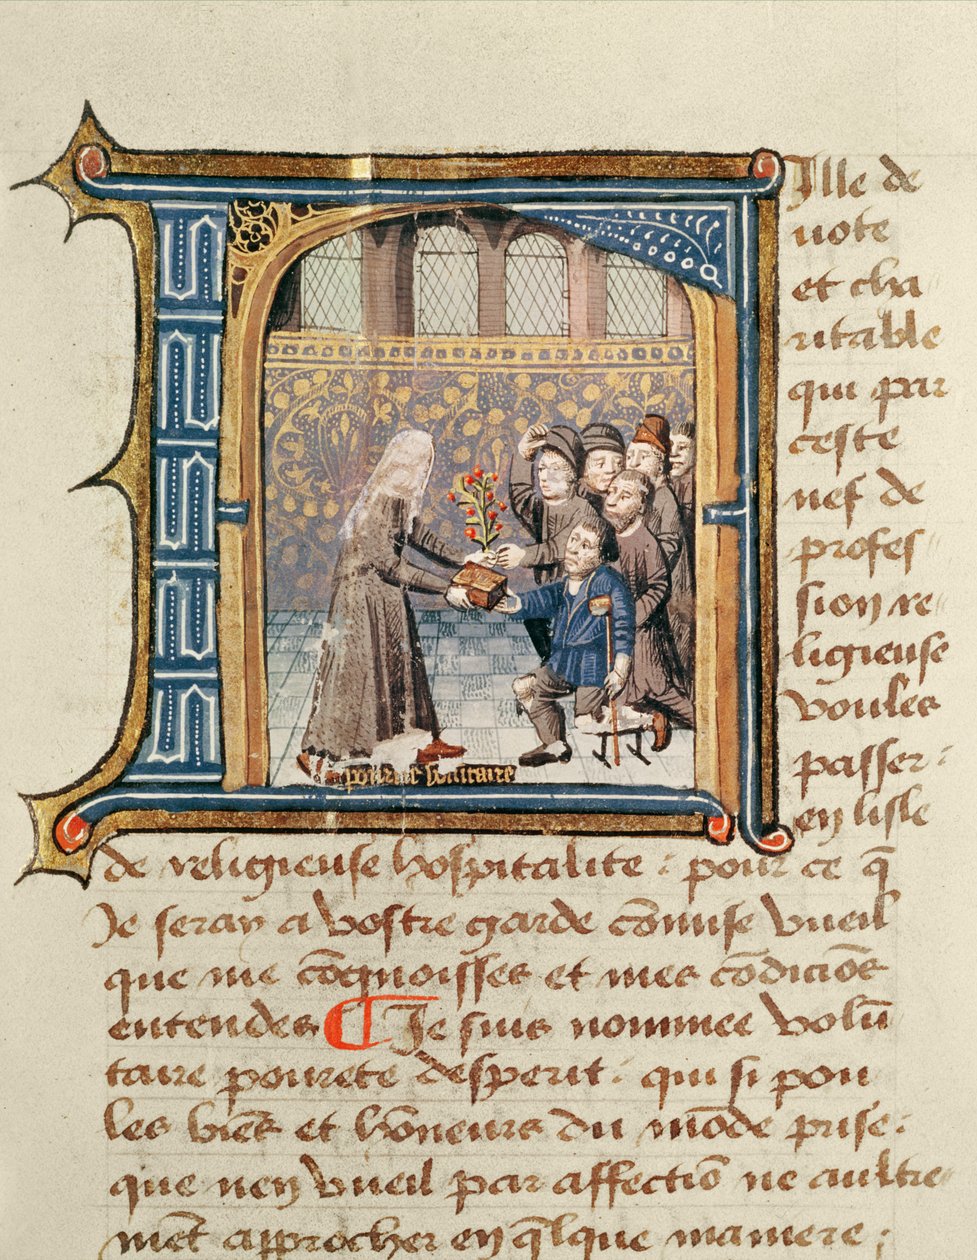 Ille de
uote
et cha
ritable
qui par
ceste
nef de
profes
sion re
ligieuse
voules
passer :
en lisle
pourete volutaire
de religieuse hospitalite : pour ce q̄
Je seray a vostre garde cōmise vueil
que me cōgnoisses et mes cōdiciōs
entendes ¶ Je suis nommee volū
taire pourete desperit : qui si pou
les biēs et hōneurs du mōde prise :
que nen vueil par affectiō ne aultre
mēt approcher en q̄lque maniere :